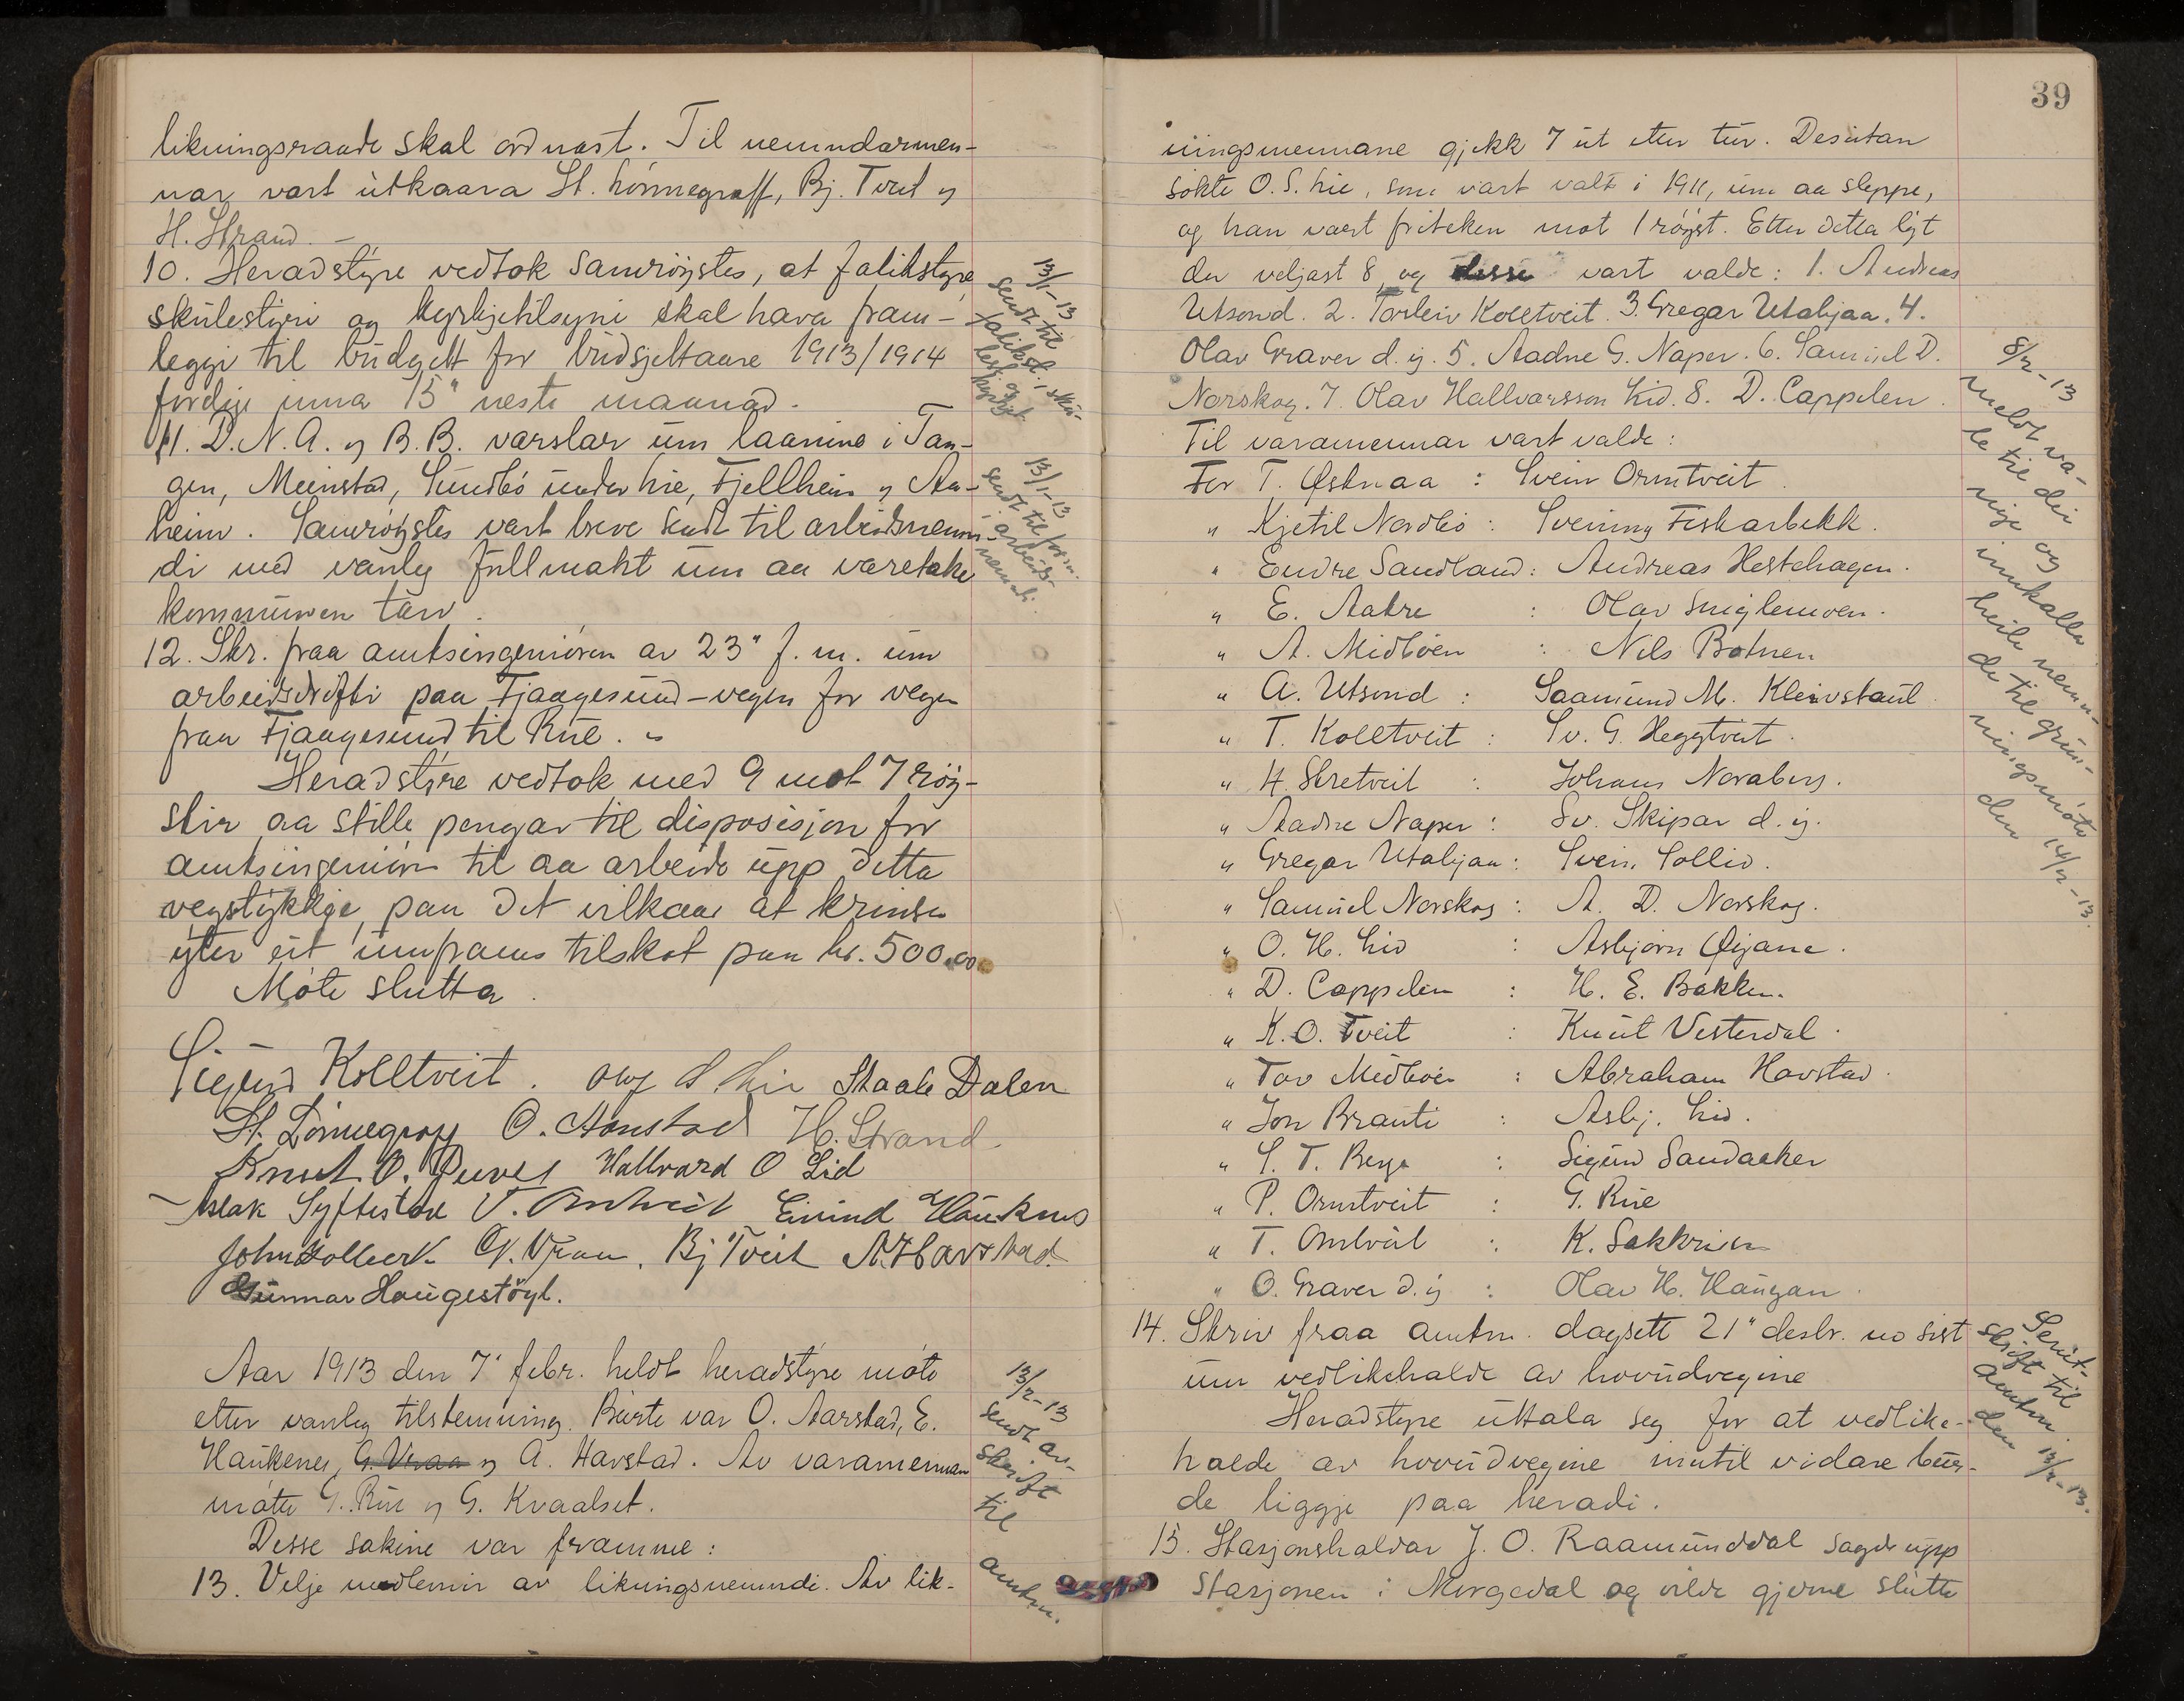 likningsraade skal ordnast. Til nemndarmen-
nar vart utkaara St. Lönnegraff, Bj. Tveit og
H. Strand. –
10. Heradstyre vedtok samröystes, at falikstyre,
skulestyre og kyrkjetilsyni skal hava fram-
leggi til budgett for budsjettaare 1913/1914
ferdige inna 15" neste maanad.
13/1-13 sendt til falikst., skulest. og kyrkjet.
11. D.N.A. og B.B. varslar um laanine i Tan-
gen, Meinstad, Sundbö under Lie, Fjellheim og Aa-
heim. Samröystes vart breve sendt til arbeidsnemn-
di med vanleg fullmakt um aa varetaka
kommunen tarv.
13/1-13 sendt til form. i arbeidsnemndi.
12. Skr. fraa amtsingeniören av 23" f.m. um
arbeidsdrifti paa Fjaagesund-vegen for vegen
fraa Fjaagesund til Rue. "
Heradstyre vedtok med 9 mot 7 röy-
stir aa stille pengar til disposisjon for
amtsingeniören til aa arbeide upp detta
vegstykkje, paa det vilkaar at krinsen
yter eit umframs tilskot paa kr. 500.00.
Möte slutta.
Sigurd Kolltveit. Olaf S Lie Staale Dalen
St. Lönnegraff O. Aarstad H. Strand
Knut O. Hallvard O Lid
Aslak Syftestad T. Omtveit Eivind Haukenes
John Solberk G. Vraa. Bj Tveit A. Havstad.
Gunnar Haugestöyl.
Aar 1913 den 7' febr. heldt heradstyre möte
etter vanleg tilstemning. Burte var O. Aarstad, E.
Haukenes, G. Vraa og A. Havstad. Av varamennan
mötte G. Rue og G. Kvaalset.
Desse sakine var framme:
13. Velje medlemir av likningsnemndi. Av lik-
13/2-13 sendt avskrift til amtm.
39
ningsmennane gjekk 7 ut etter tur. Desutan
sökte O.S. Lie, som vart vald i 1911, um aa sleppe,
og han vart friteken mot 1 röyst. Etter detta lyt
der veljast 8, og desse vart valde: 1. Andreas
Utsond. 2. Torleiv Kolltveit. 3. Gregar Utabjaa. 4.
Olav Graver d.y. 5. Aadne G. Naper. 6. Samuel D.
Norskog. 7. Olav Hallvarsson Lid. 8. D. Cappelen.
Til varamennar vart valde:
For T. Østnaa : Svein Ormtveit.
" Kjetil Nordbö : Sveinung Fiskarbekk.
" Endre Sandland : Andreas Hestehagen.
" E. Aakre : Olav Sniglemoen.
" A. Midböen : Nils Botnen
" A. Utsond : Saamund M. Kleivstaul.
" T. Kolltveit : Sv. G. Heggtveit.
" H. Skretveit : Johans Noraberg.
" Aadne Naper : Sv. Skipar d.y.
" Gregar Utabjaa : Svein Sollid.
" Samuel Norskog : A. D. Norskog.
" O. H. Lid : Asbjörn Öygane.
" D. Cappelen : H. E. Bakken.
" K.O. Tveit : Knut Vesterdal.
" Tov Midböen : Abraham Havstad.
" Jon Brauti : Asbj. Lid.
" S. T. Berge : Sigurd Sandaaker
" P. Ormtveit : G. Rue
" T. Omtveit : K. Sakkrisen
" O. Graver d.y : Olav H. Haugan.
8/2-13 meldt vale til dei nye og innkalla heile nemnde til grunningsmöte den 14/2-13.
14. Skriv fraa amtm. dagsett 21" desbr. no sist
um vedlikehalde av hovudvegine
Heradstyre uttala seg for at vedlike-
halde av hovudvegine inntil vidare bur-
de liggje paa heradi.
Sendt skrift til amtm. den 13/2-13.
15. Stasjonshaldar J. O. Raamunddal sagde upp
stasjonen i Morgedal og vilde gjerne slutte